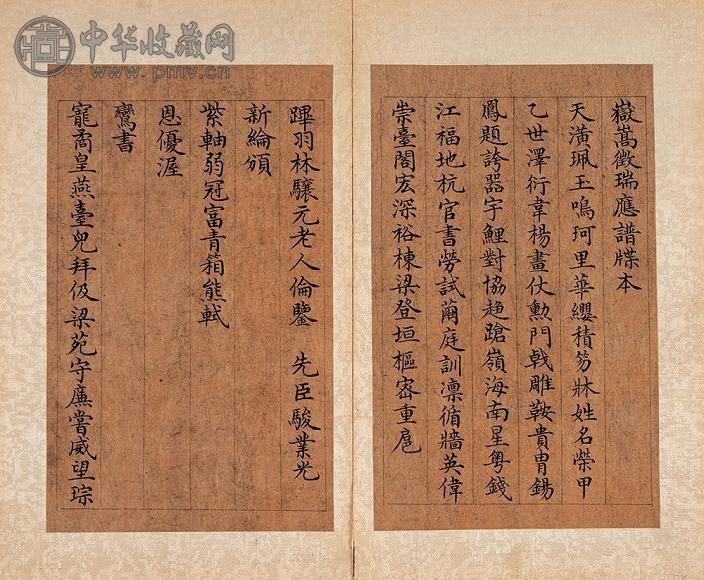 中华收藏网
www.pmv.cn
嶽嵩徵瑞應譜牒本
天潢珮玉鳴珂里華纓積笏牀姓名榮甲
乙世澤衍韋楊畫仗勳門戟雕鞍貴胄鍚
鳳題誇器宇鯉對協趨蹌嶺海南星粤錢
江福地杭官書勞試蕳庭訓凛循牆英偉
崇臺閣宏深裕棟梁登垣樞密重扈
蹕羽林驤元老人倫鑒 先臣駿業光
新綸頒
紫軸弱冠富青箱熊軾
恩優渥
鸞書
寵矞皇燕臺皃拜伋梁苑守廉嘗威望琮